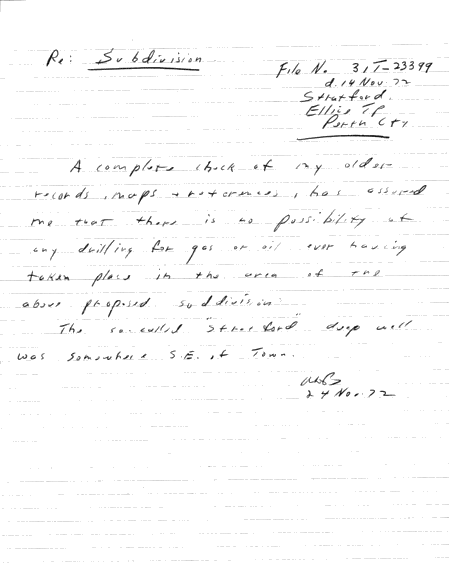 Re: Subdivision
File No. 31T-23399
d. 14 Nov. 72
Stratford.
Ellice Tp
Perth Cty
A complete check of my older
records, maps + references, has assured
me that there is no possibility of
any drilling for gas or oil ever having
taken place in the area of the
above proposed subdivision.
The so-called "Stratford" deep well
was somewhere S.E. of Town.
24 Nov. 72